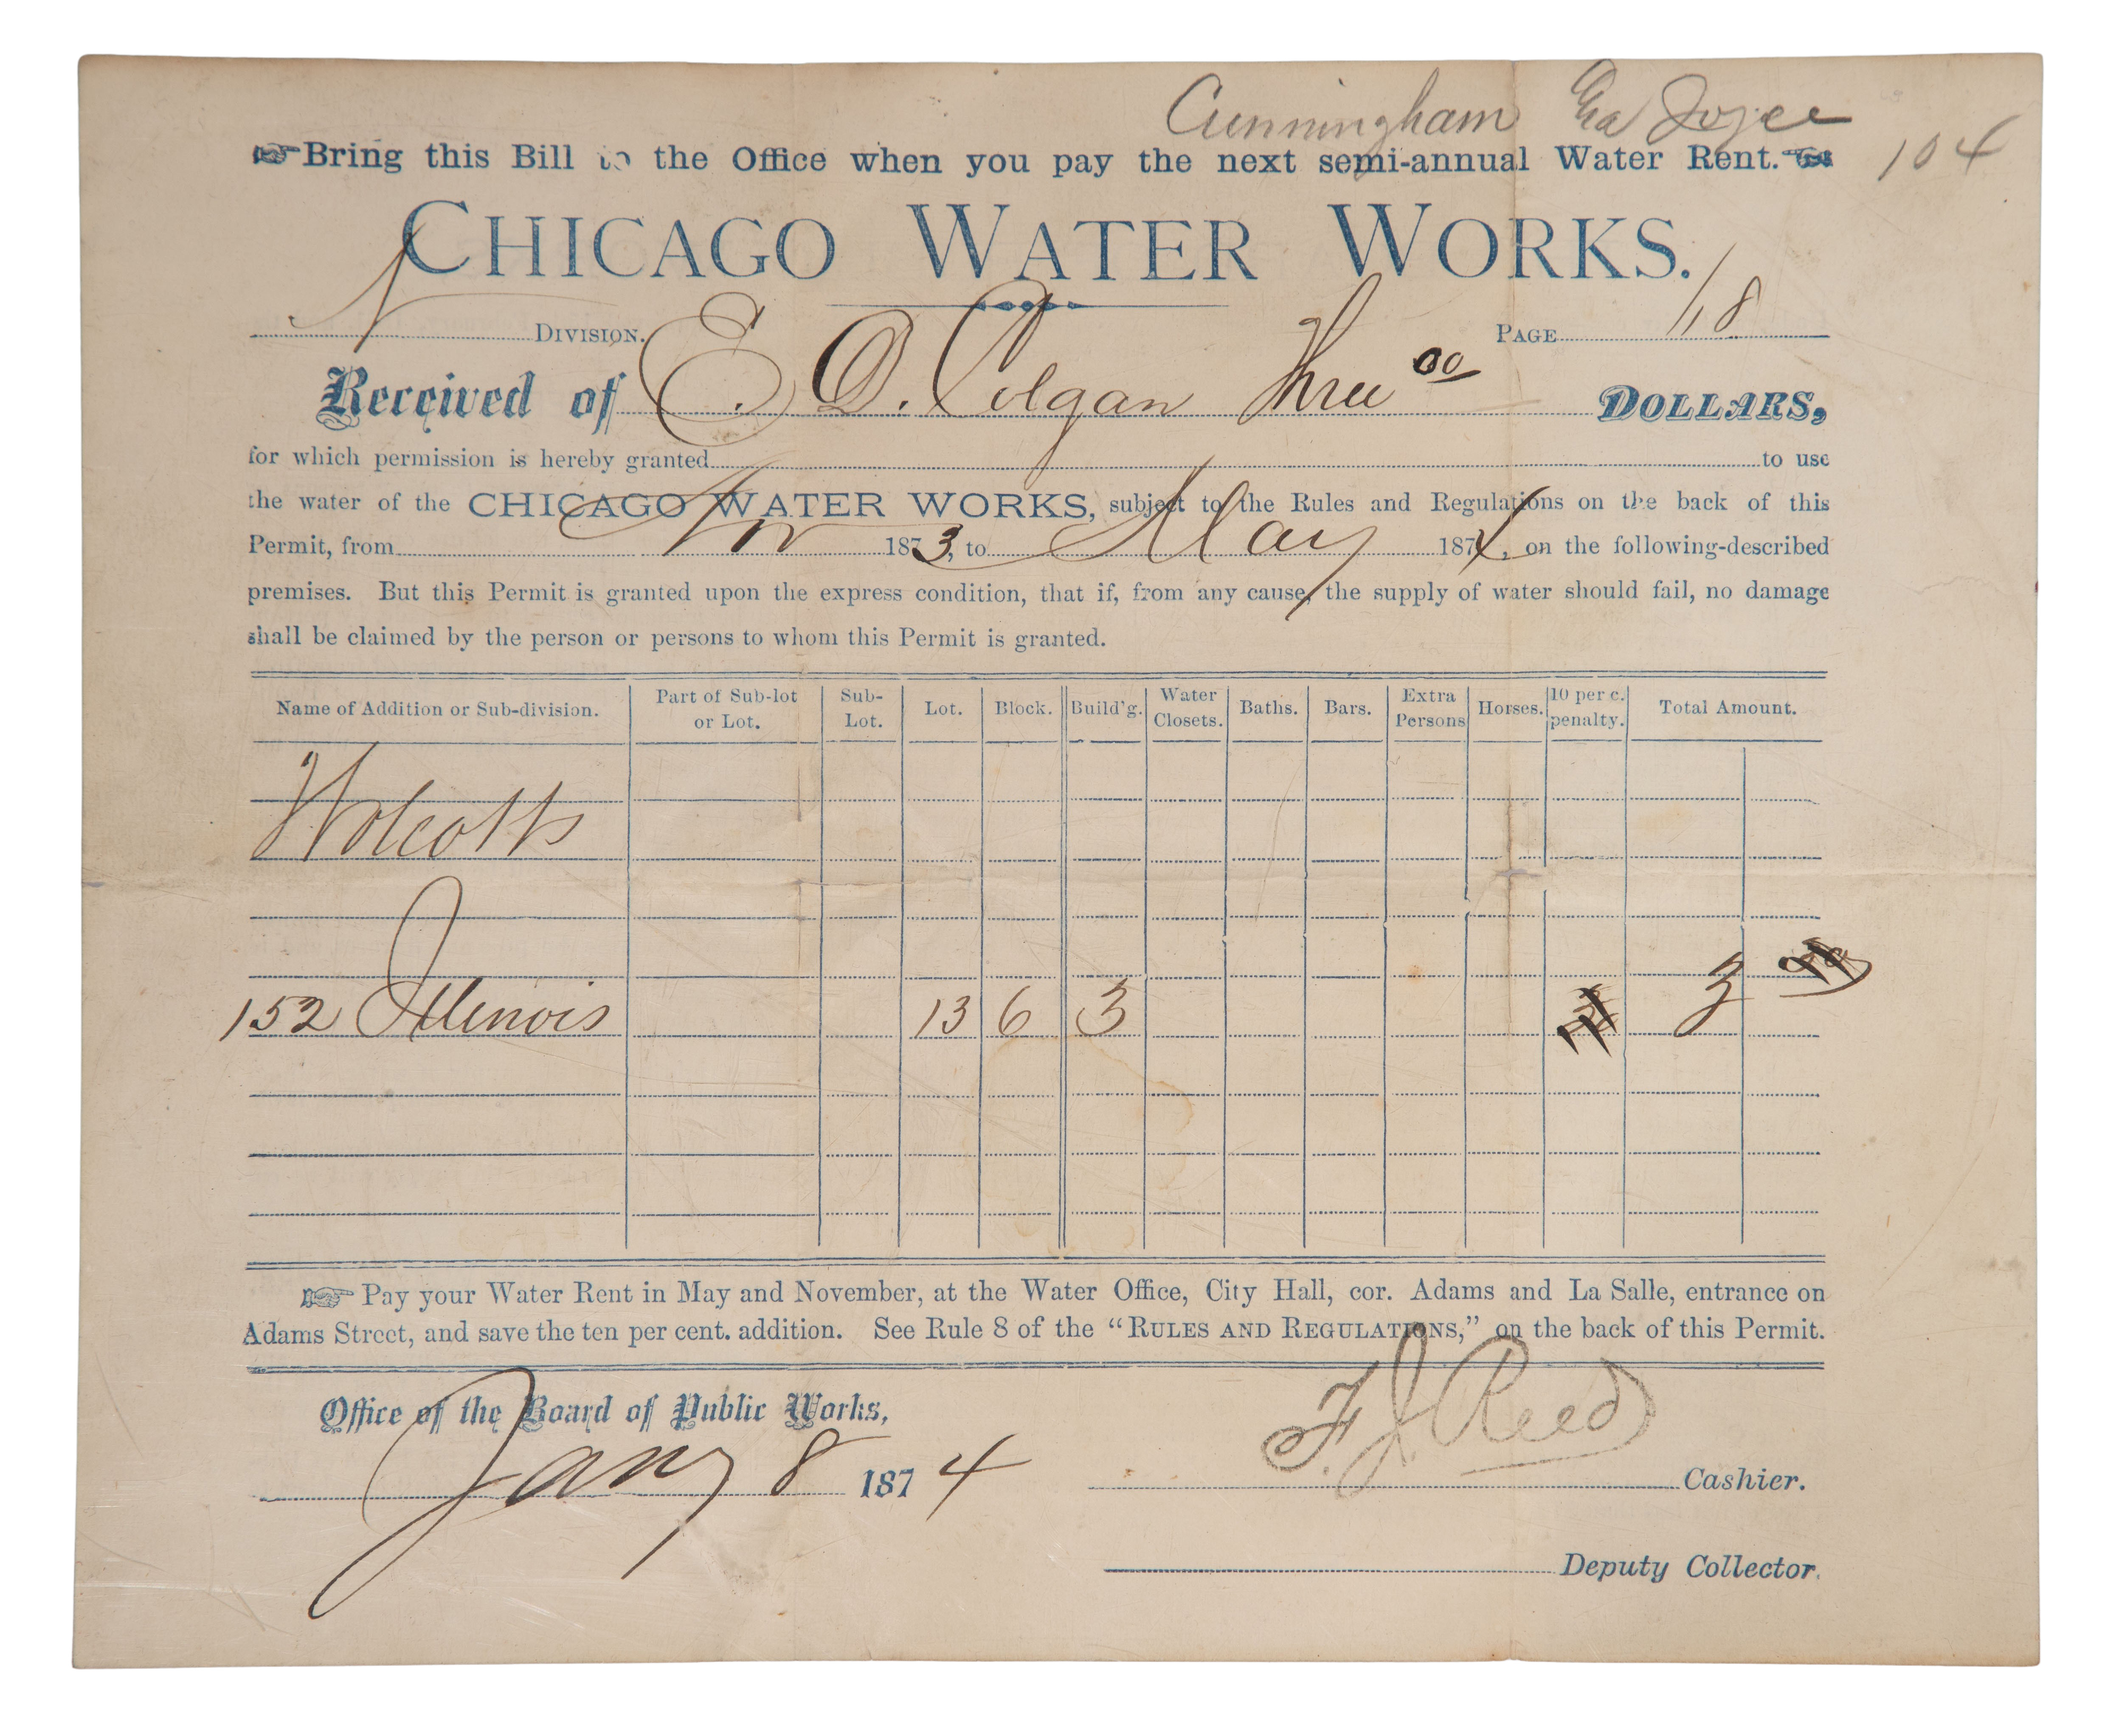 Cunningham Joyce
104
Bring this Bill to the Office when you pay the next semi-annual Water Rent.
CHICAGO WATER WORKS.
N DIVISION. PAGE 118
Received of E. D. Colgan Three 00 DOLLARS,
for which permission is hereby granted to use
the water of the CHICAGO WATER WORKS, subject to the Rules and Regulations on the back of this
Permit, from Nov 1873, to May 1874, on the following-described
premises. But this Permit is granted upon the express condition, that if, from any cause, the supply of water should fail, no damage
shall be claimed by the person or persons to whom this Permit is granted.
Name of Addition or Sub-division. Part of Sub-lot or Lot. Sub-Lot. Lot. Block. Build'g. Water Closets. Baths. Bars. Extra Persons Horses. 10 per c. penalty. Total Amount.
Wolcotts
152 Illinois 13 6 3 3
Pay your Water Rent in May and November, at the Water Office, City Hall, cor. Adams and La Salle, entrance on
Adams Street, and save the ten per cent. addition. See Rule 8 of the “RULES AND REGULATIONS,” on the back of this Permit.
Office of the Board of Public Works,
Jany 8 1874
F. J. Reed Cashier.
Deputy Collector.